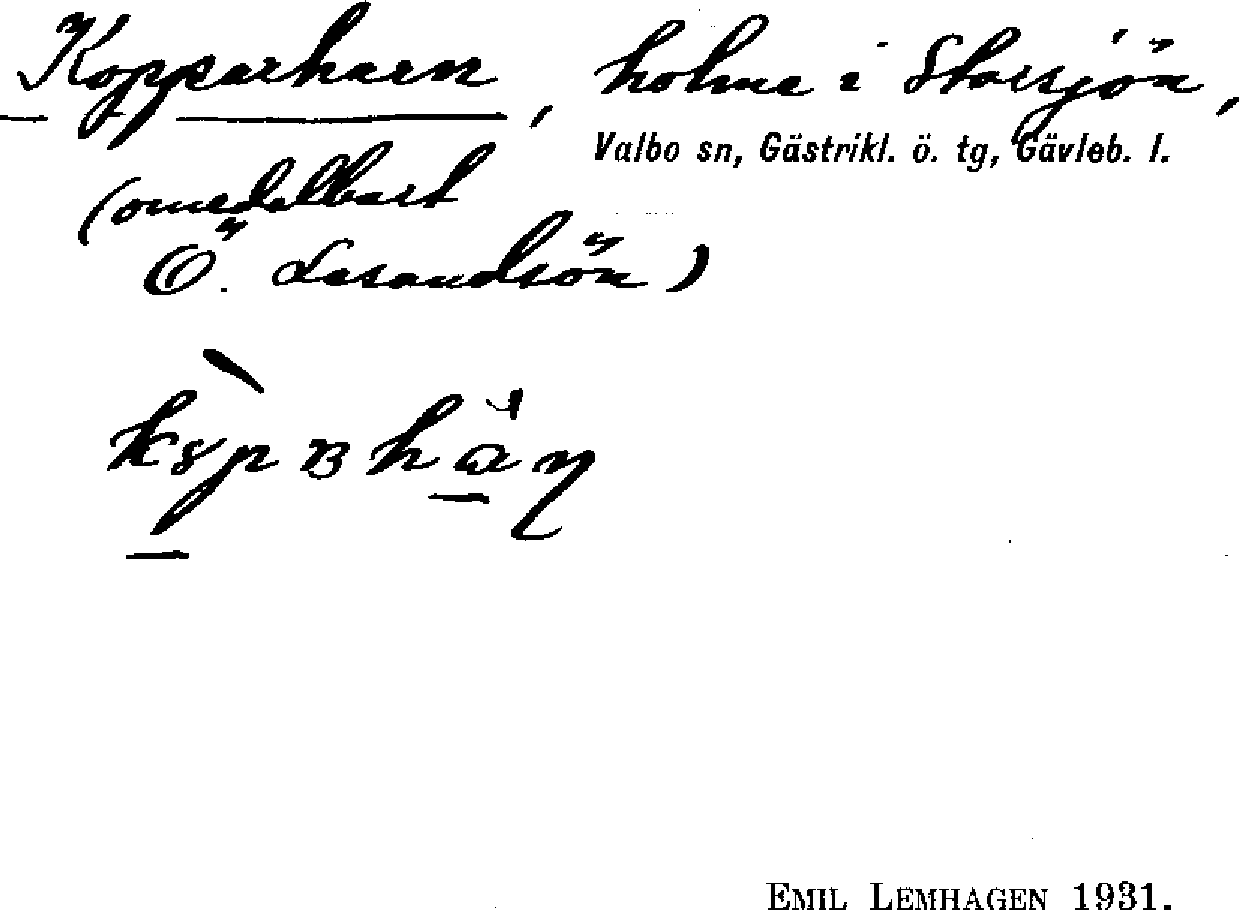 Kopparharn, holme i Storsjön,
Valbo sn, Gästrikl. ö. tg, Gävleb. l.
(omedelbart
Ö.
EMIL LEMHAGEN 1931.